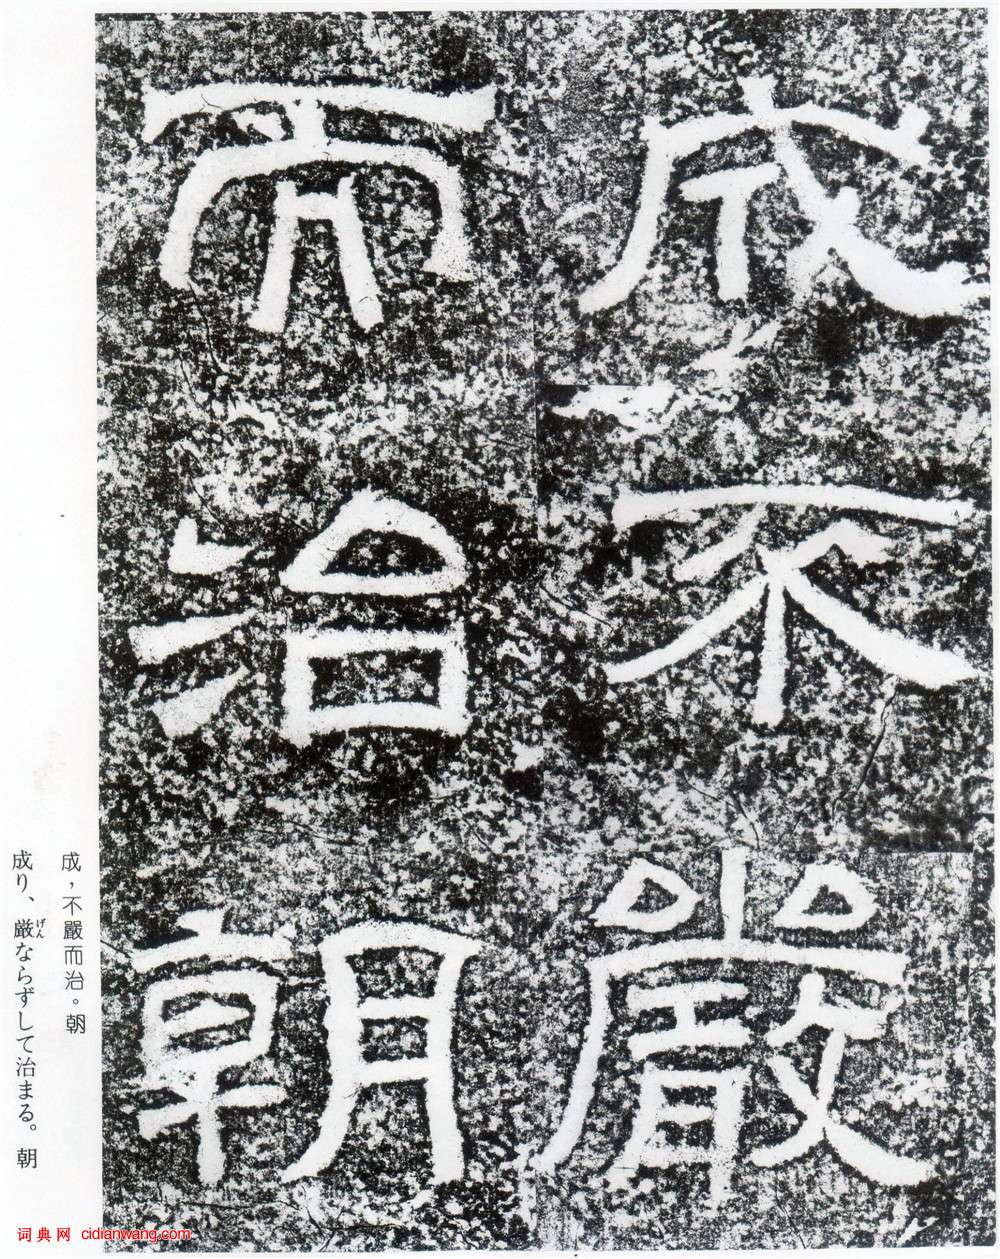 成不嚴
而治朝
成，不嚴而治。朝
成り、厳ならずして治まる。朝
げん
词典网 cidianwang.com